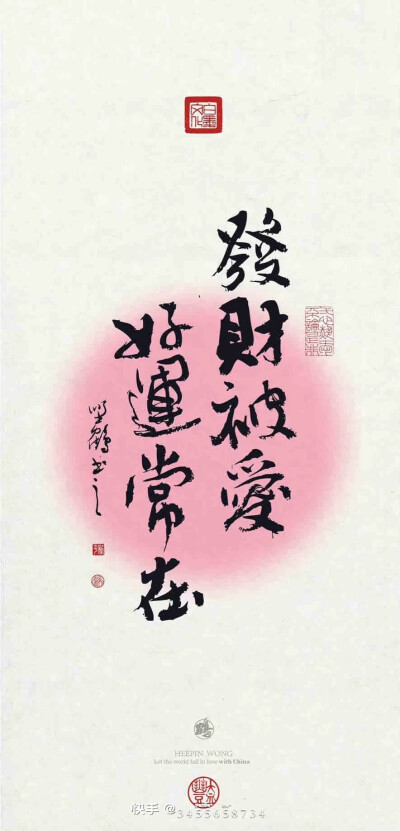 發財被愛
好運常在
鶴書之
HEEPIN WONG
Let the world fall in love with China
快手 @3455658734